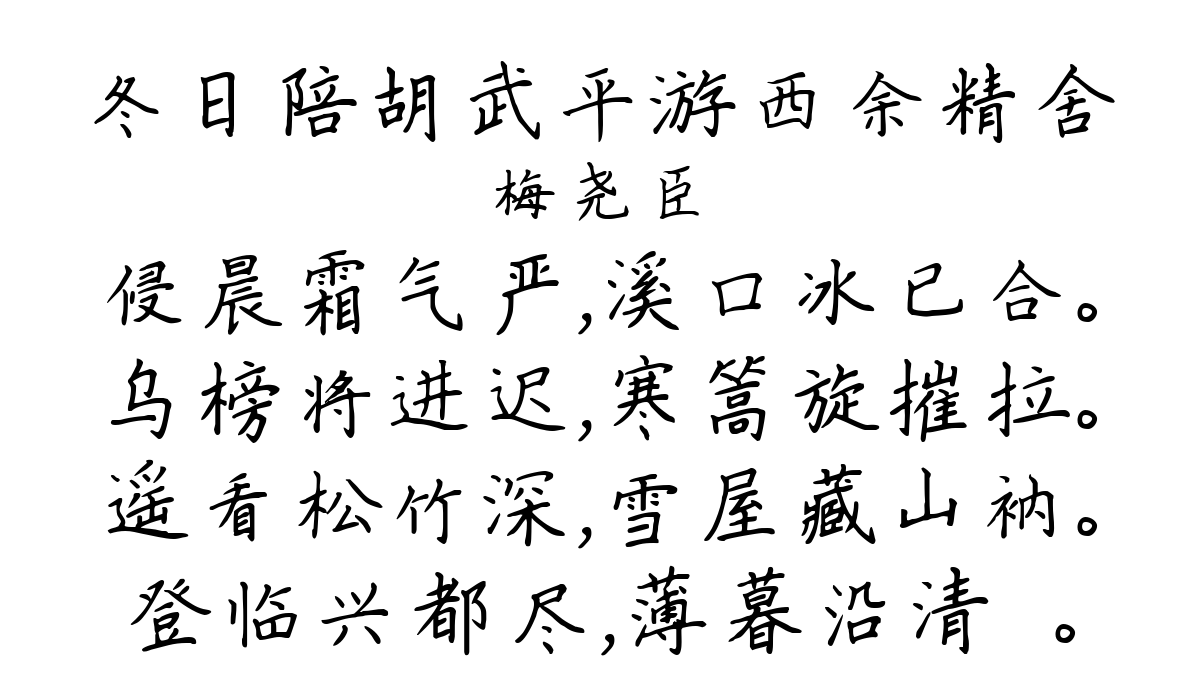 冬日陪胡武平游西余精舍
梅尧臣
侵晨霜气严,溪口冰已合。
乌榜将进迟,寒篙旋摧拉。
遥看松竹深,雪屋藏山衲。
登临兴都尽,薄暮沿清 。